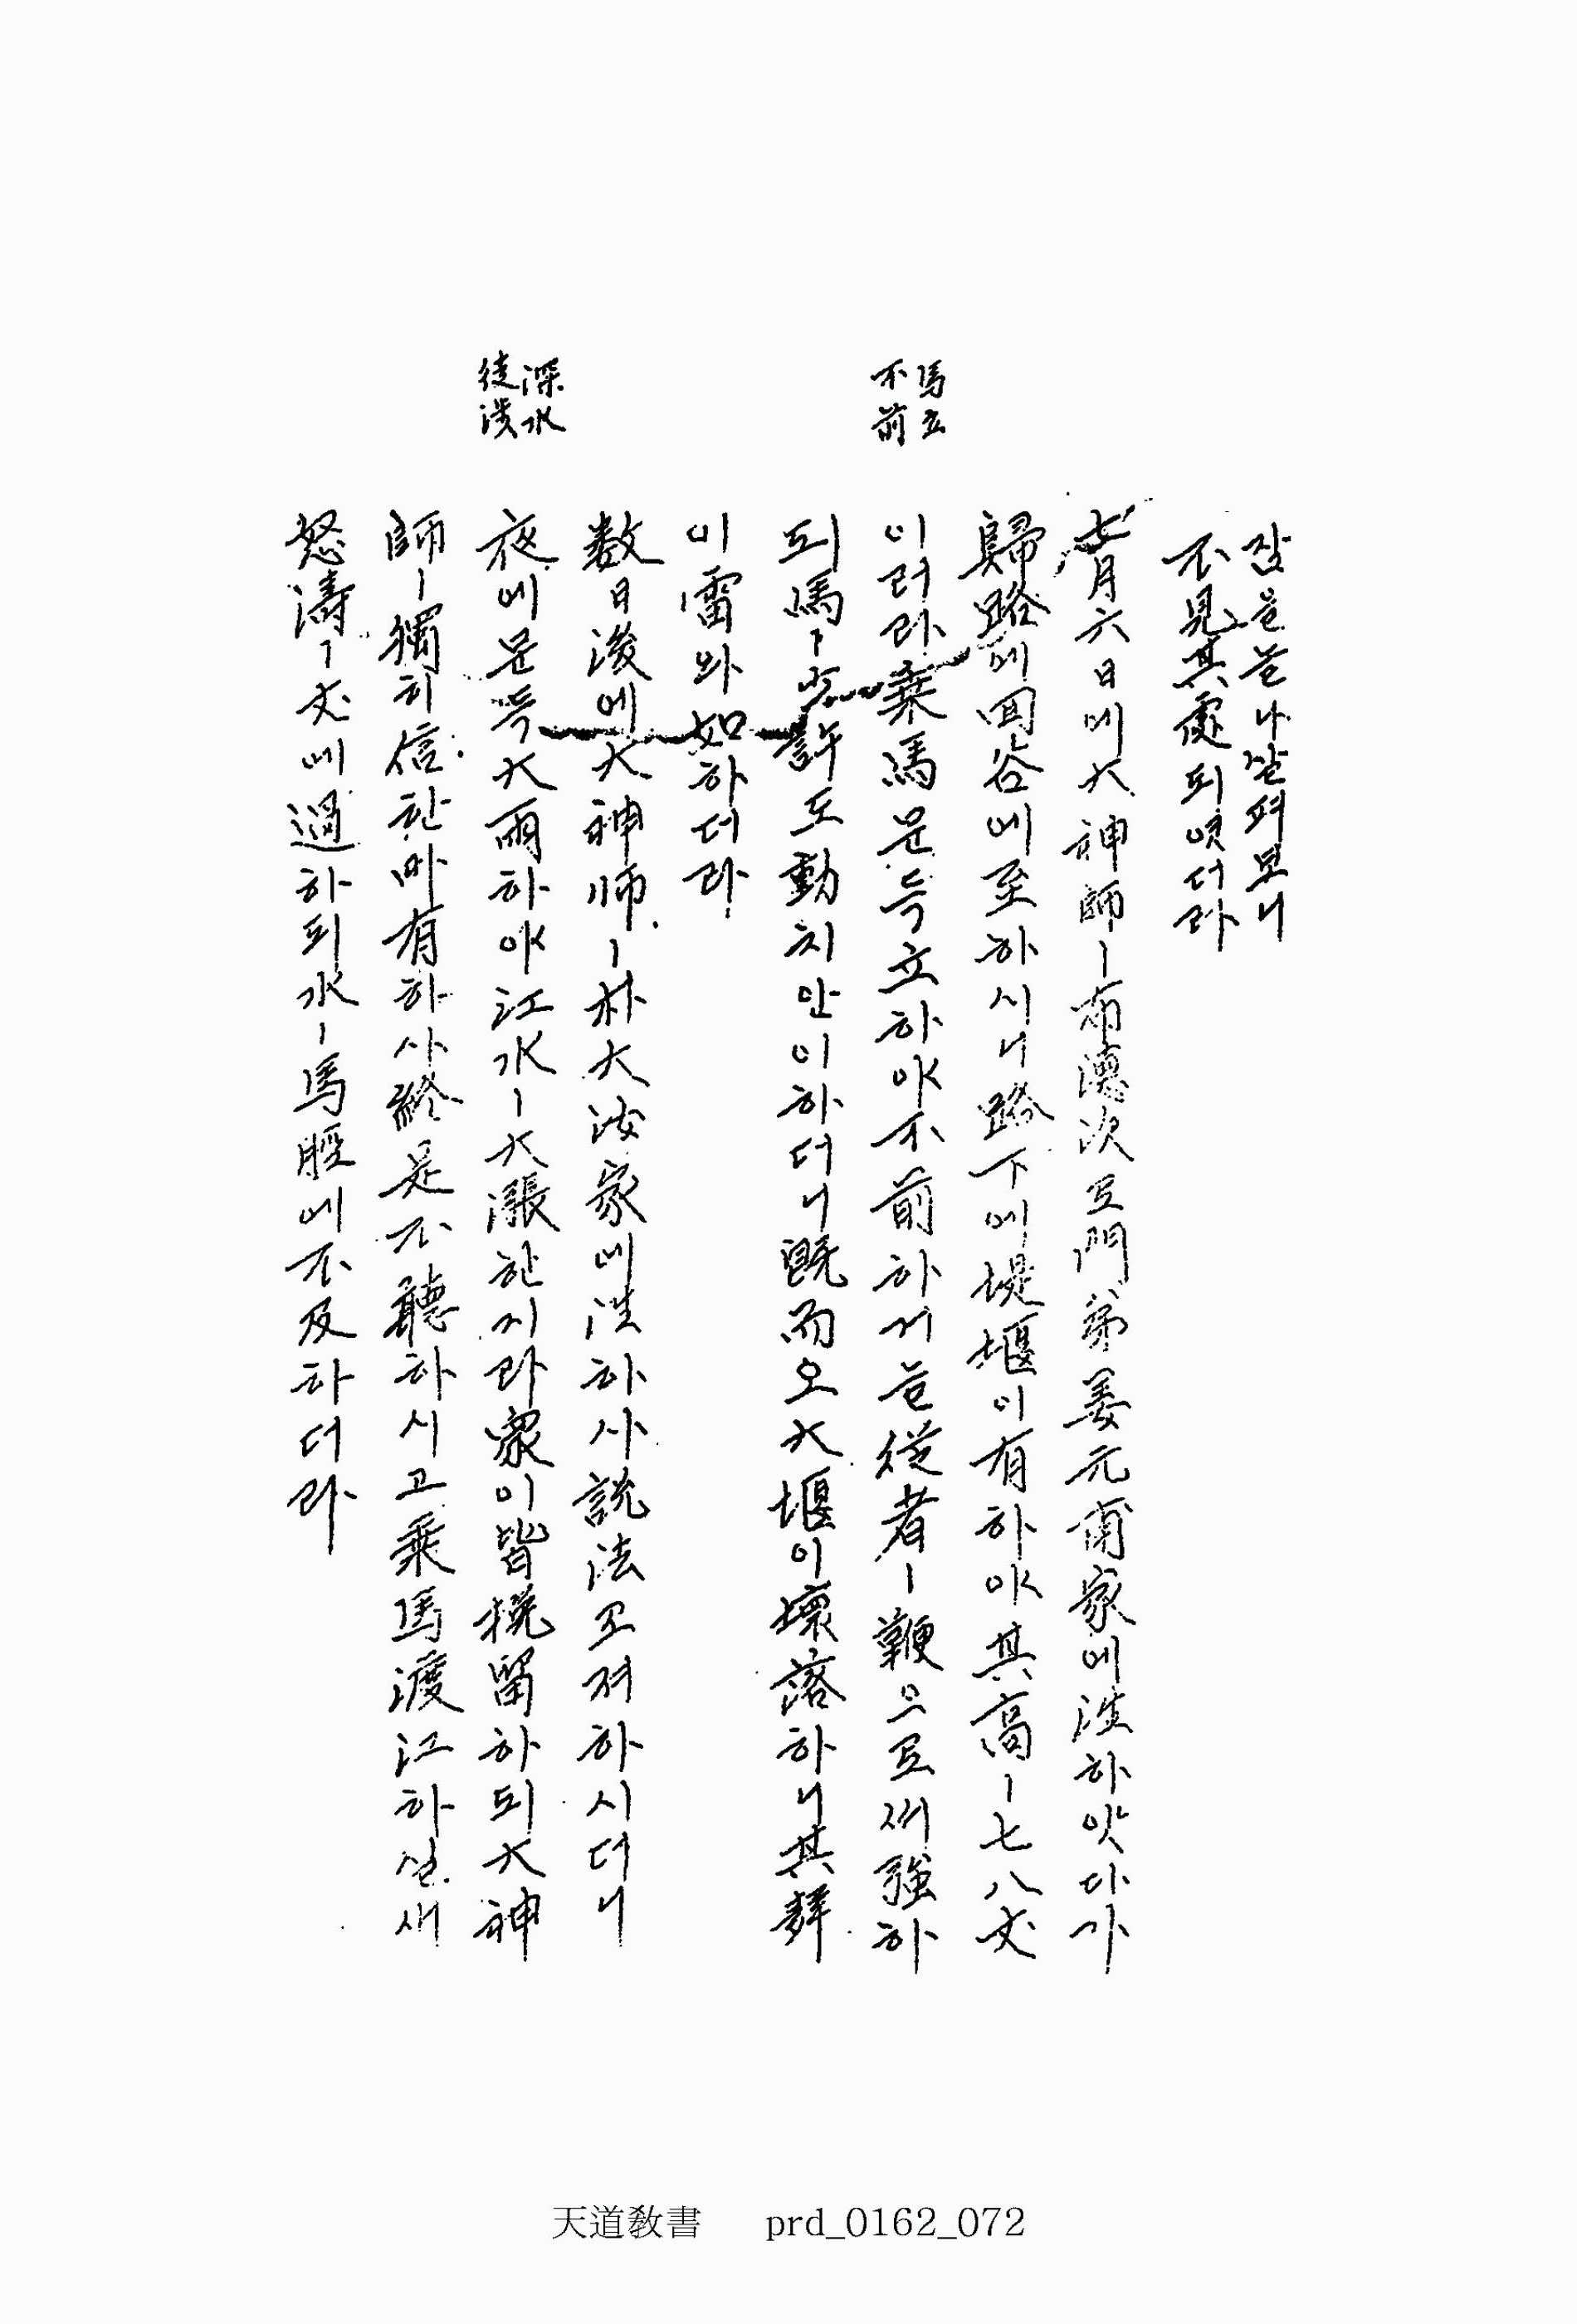 잠을 끌나 살펴보니
不見其處되엿더라
七月六日에 大神師ㅣ 布德次로 門弟 姜元甫家에 往하얏다가
馬立
不前
歸路에 回谷에 至하시니 路下에 堤堰이 有하야 其高ㅣ 七八丈
이러라 乘馬 문득 立하야 不前하거늘 從者ㅣ 鞭으로써 強하
되 馬ㅣ 少許도 動치 안이하더니 旣而오 大堰이 壞落하니 其聲
이 雷와 如하더라
深水
徒涉
数日後에 大神师ㅣ 朴大汝家에 往하사 說法코져 하시더니
夜에 문득 大雨하야 江水ㅣ 大漲한지라 衆이 皆挽留하되 大神
師ㅣ 獨히 信한 바 有하사 終是不聽하시고 乘馬渡江하실새
怒濤ㅣ 丈에 過하되 水ㅣ 馬脛에 不及하더라
天道敎書 prd_0162_072